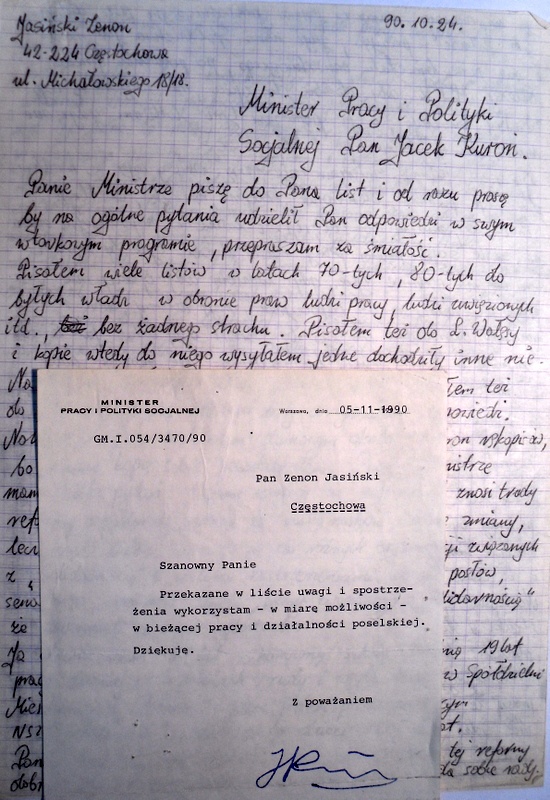 Jasiński Zenon
90.10.24.
42-224 Częstochowa
ul. Michałowskiego 18/18.
Minister Pracy i Polityki
Socjalnej Pan Jacek Kuroń.
Panie Ministrze piszę do Pana list i od razu proszę
by na ogólne pytania udzielił Pan odpowiedzi w swym
wtorkowym programie, przepraszam za śmiałość.
Pisałem wiele listów w latach 70-tych, 80-tych do
byłych władz w obronie praw ludzi pracy, ludzi uwięzionych
itd., bez żadnego strachu. Pisałem też do L. Wałęsy
i kopie wtedy do niego wysyłałem jedne dochodziły inne nie.
też
do
bo
znosi trudy
ref
zmiany,
lecz
związanych
z
posłów,
sena
że
Ja
19 lat
prac
w Spółdzielni
Mies
NSZ
Pan
tej reformy
dob
sobie rady.
MINISTER
PRACY I POLITYKI SOCJALNEJ
Warszawa, dnia 05-11-1990
GM.I.054/3470/90
Pan Zenon Jasiński
Częstochowa
Szanowny Panie
Przekazane w liście uwagi i spostrze-
żenia wykorzystam - w miarę możliwości -
w bieżącej pracy i działalności poselskiej.
Dziękuję.
Z poważaniem